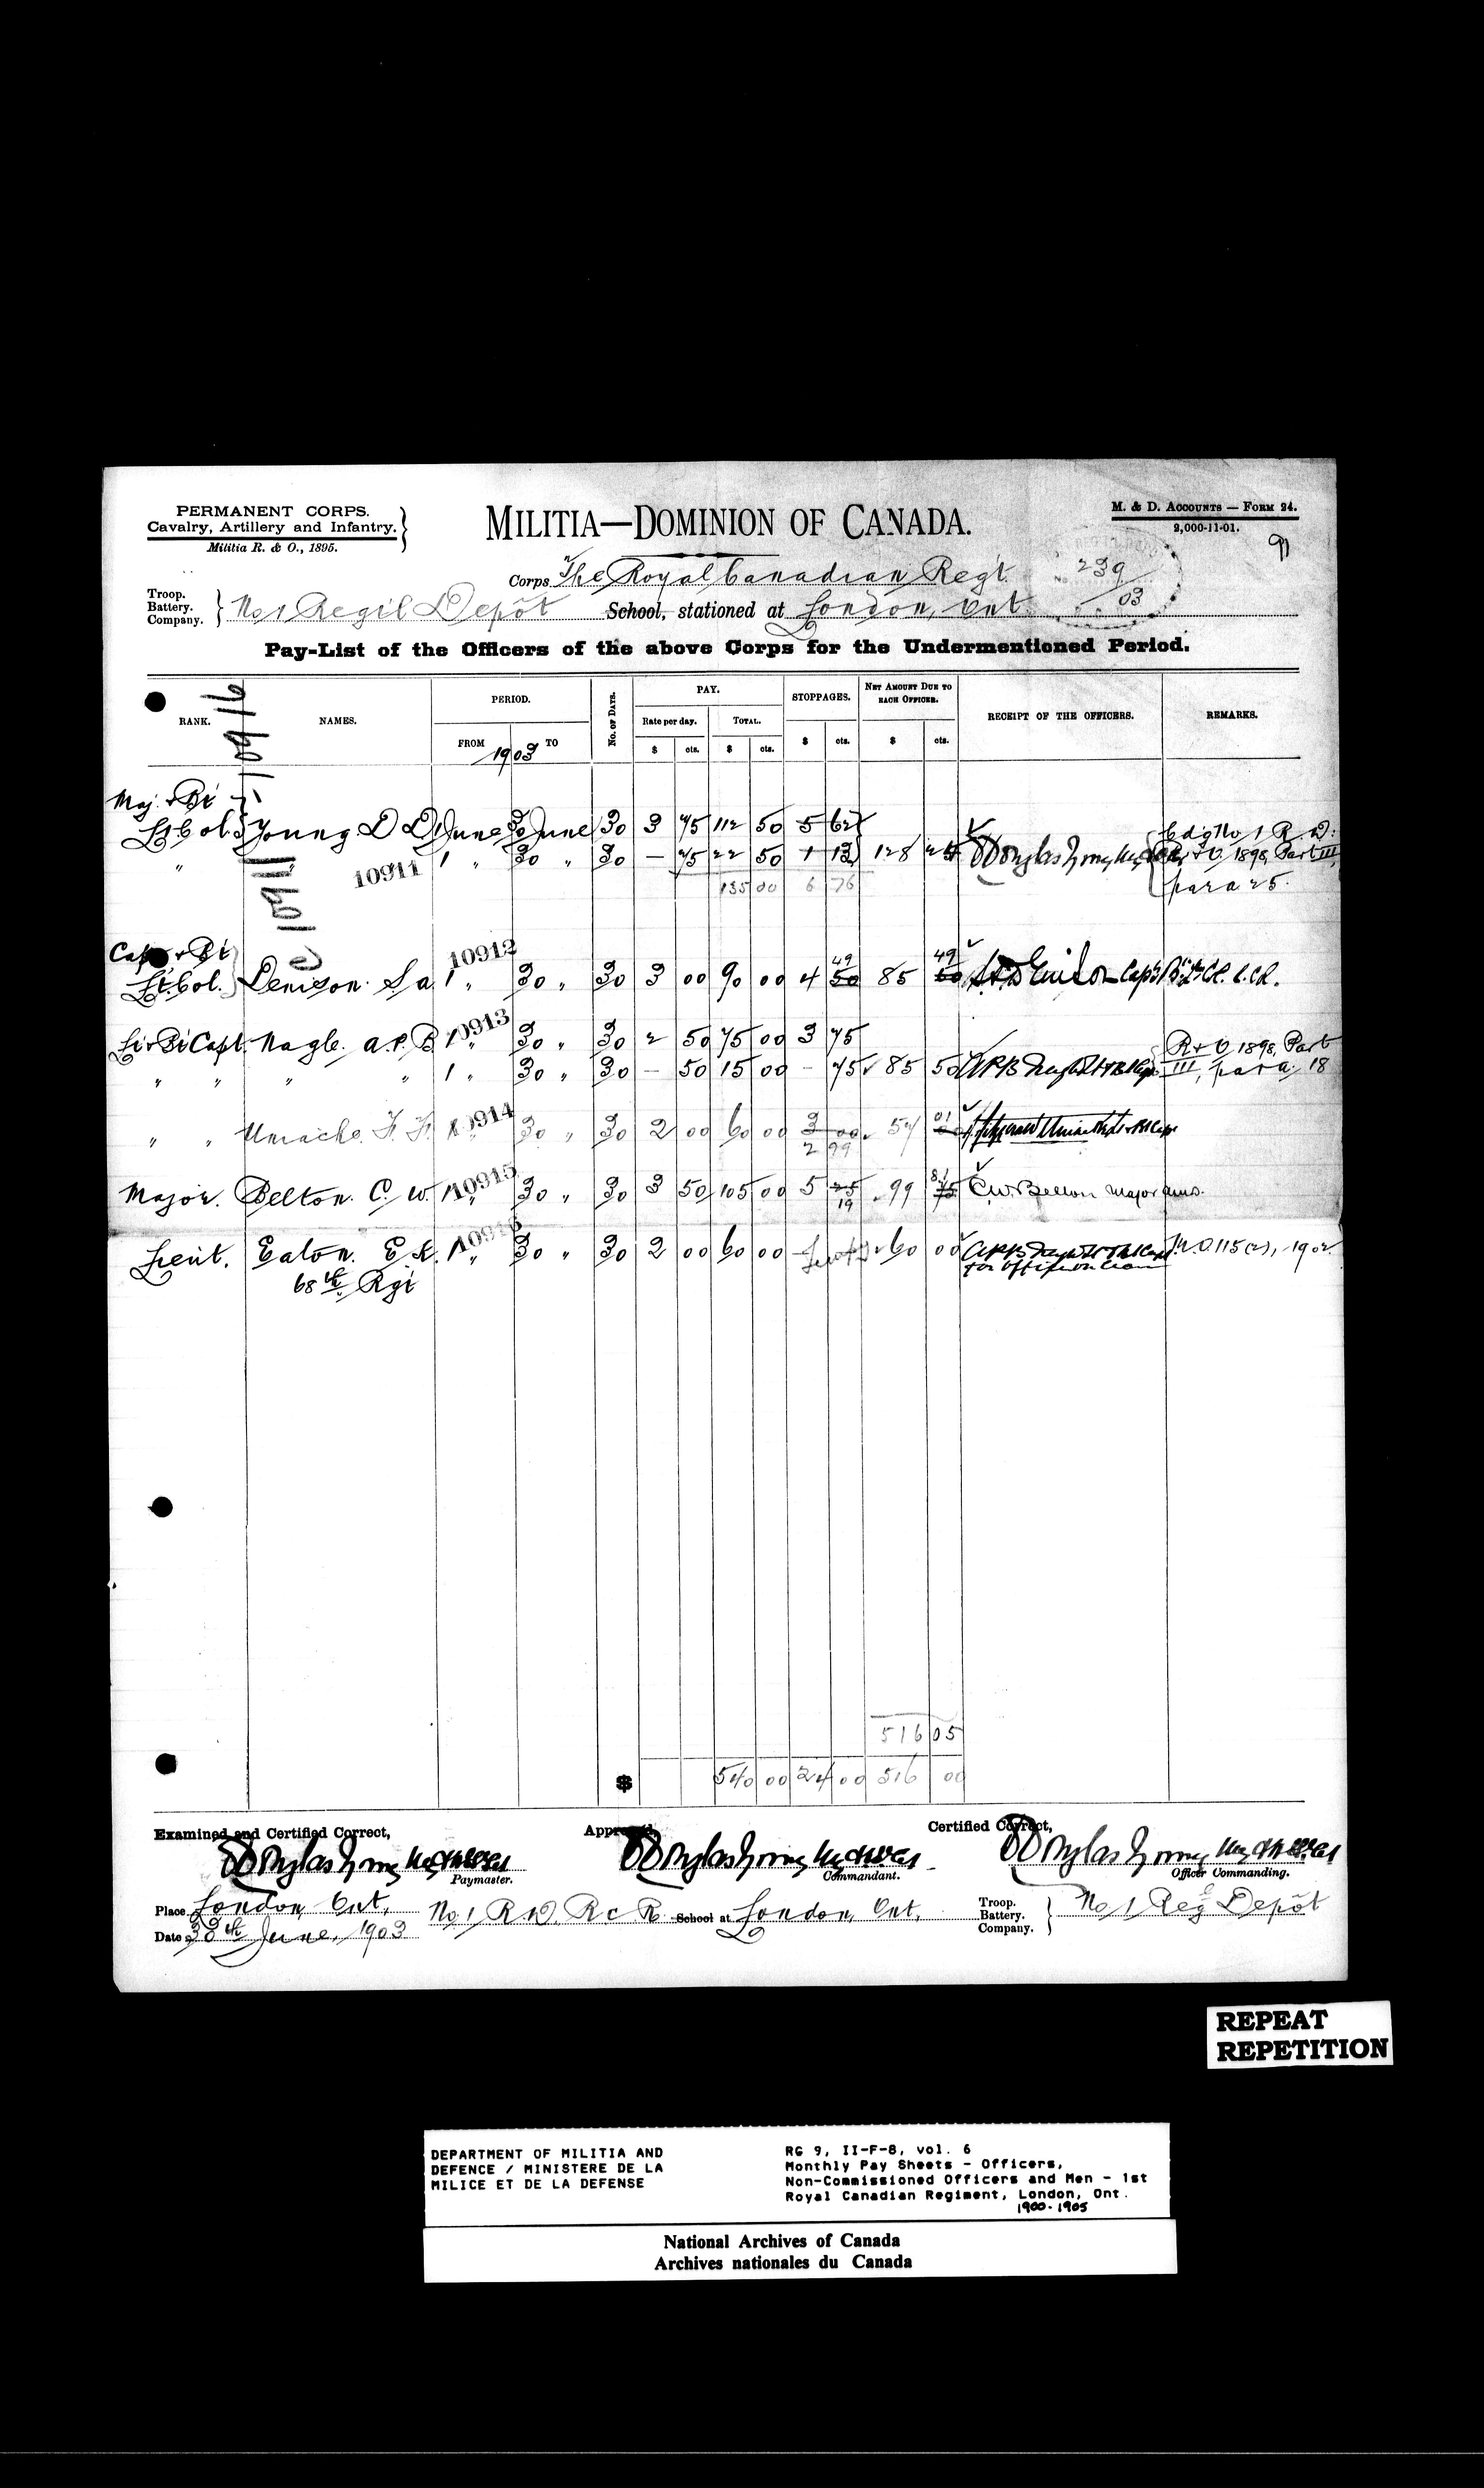 PERMANENT CORPS.
Cavalry, Artillery and Infantry.
Militia R. & O., 1895.
MILITIA—DOMINION OF CANADA.
M. & D. ACCOUNTS — FORM 24.
2,000-11-01.
91
Corps The Royal Canadian Regt.
239
03
Troop. Battery. Company. No 1 Reg'l Depôt School, stationed at London, Ont.
Pay-List of the Officers of the above Corps for the Undermentioned Period.
RANK. NAMES. PERIOD. FROM 1903 TO No. OF DAYS. PAY. Rate per day. $ cts. TOTAL. $ cts. STOPPAGES. $ cts. NET AMOUNT DUE TO EACH OFFICER. $ cts. RECEIPT OF THE OFFICERS. REMARKS.
10916
10911
Maj. & Bt
Lt. Col. Young D D 1 June 30 June 30 3 75 112 50 5 62
" 10911 1 " 30 " 30 — 75 22 50 1 13 128 24 Douglas Young R & O 1898, Part III,
135 00 6 76 para 25.
Capt & Bt 10912
Lt. Col. Denison. S A 1 " 30 " 30 3 00 90 00 4 50 49 85 50 49
Lt & Bt Capt. Nagle. A. P. B 10913 1 " 30 " 30 2 50 75 00 3 75 R & O 1898, Part
" " " " 1 " 30 " 30 — 50 15 00 — 75 85 50 III, para. 18
" " Uniacke. F. F. 10914 1 " 30 " 30 2 00 60 00 3 00 2 99 57 00 01
Major. Belton. C. W. 10915 1 " 30 " 30 3 50 105 00 5 25 19 99 75 81 C. W. Belton Major
Lieut. Eaton. E K. 10916 1 " 30 " 30 2 00 60 00 60 00 M. O 115(2), 1902
68th Rgt for officer on leave
516 05
$ 540 00 24 00 516 00
Examined and Certified Correct, Approved, Certified Correct,
Douglas Young Douglas Young Douglas Young
Paymaster. Commandant. Officer Commanding.
Place London Ont. No 1 R. D. R C R. School at London, Ont. Troop. Battery. Company. No 1 Reg'l Depôt
Date 30th June, 1903
REPEAT
REPETITION
DEPARTMENT OF MILITIA AND
DEFENCE / MINISTERE DE LA
MILICE ET DE LA DEFENSE
RG 9, II-F-8, vol. 6
Monthly Pay Sheets - Officers,
Non-Commissioned Officers and Men - 1st
Royal Canadian Regiment, London, Ont.
1900-1905
National Archives of Canada
Archives nationales du Canada